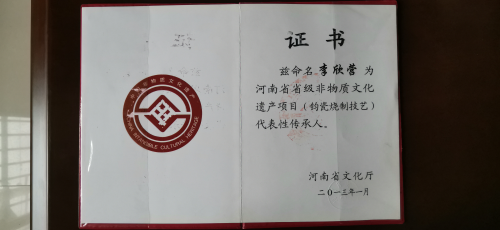 CHINA INTANGIBLE CULTURAL HERITAGE
证书
兹命名李欣营为
河南省省级非物质文化
遗产项目（钧瓷烧制技艺）
代表性传承人。
河南省文化厅
二〇一三年一月